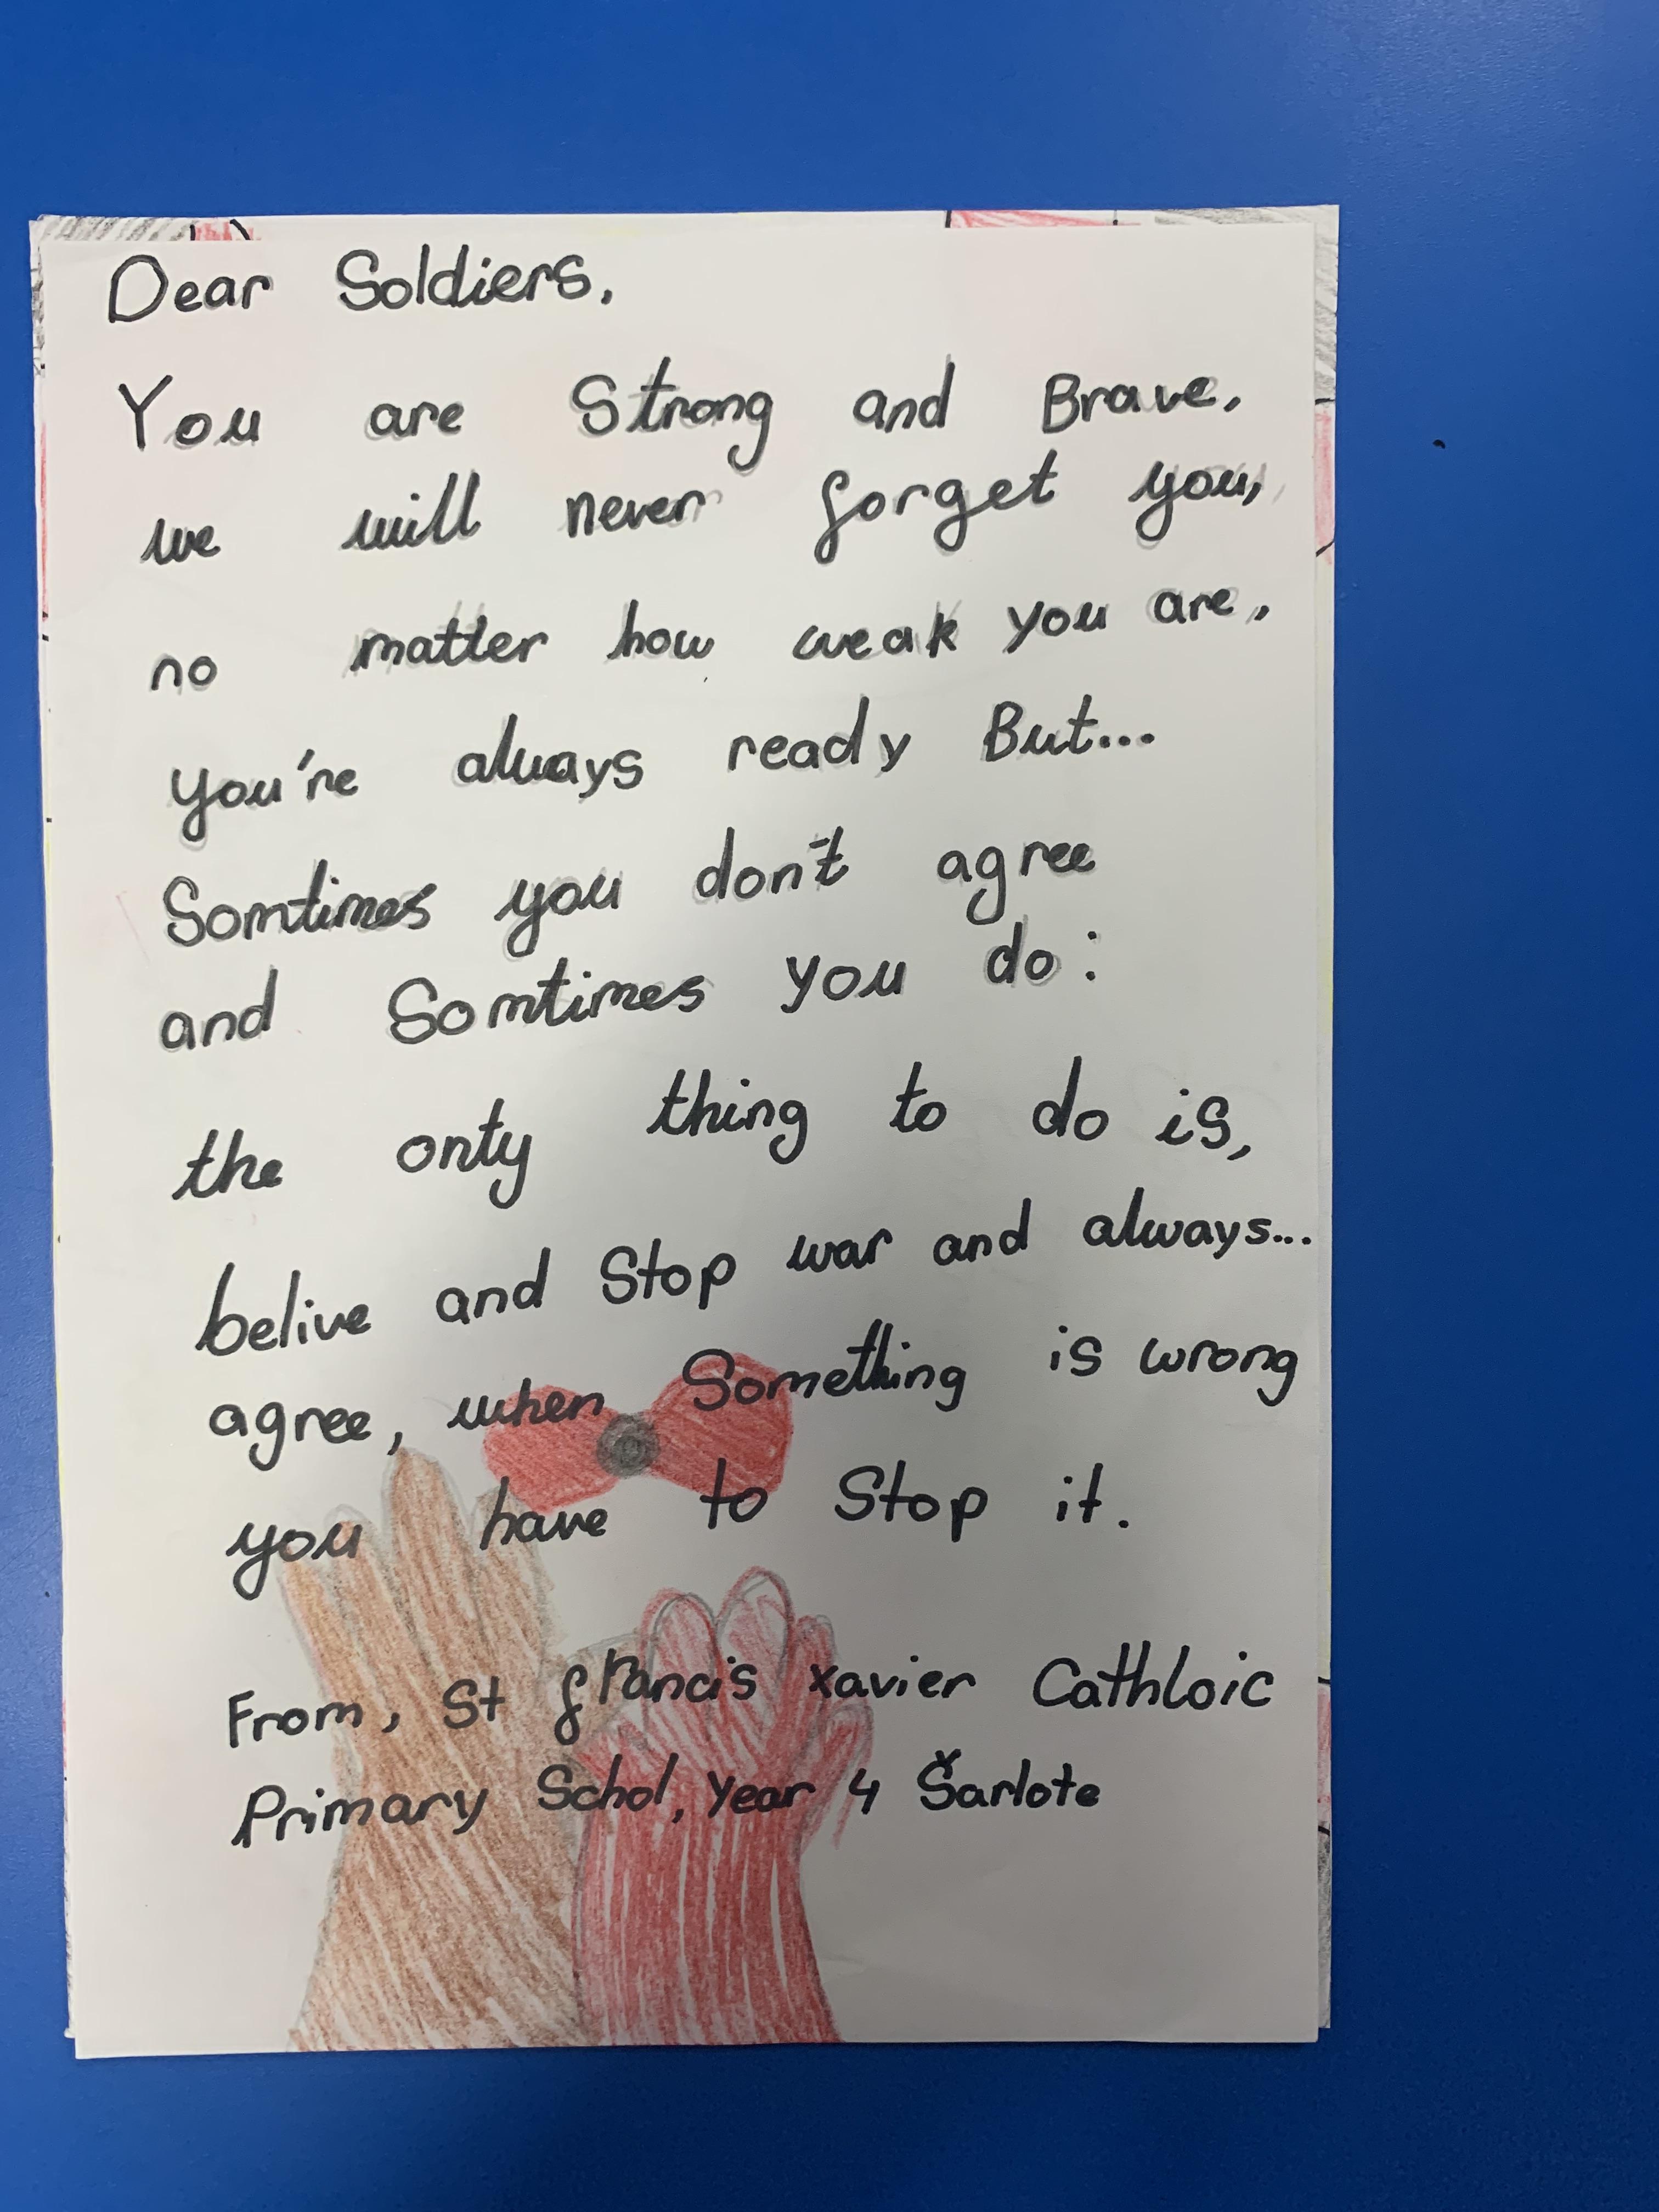 Dear Soldiers,
You are Strong and Brave,
we will never forget you,
no matter how weak you are,
you're always ready But...
Somtimes you don't agree
and Somtimes you do:
the only thing to do is,
belive and Stop war and always...
agree, when Something is wrong
you have to Stop it.
From, St francis xavier Cathloic
Primary Schol, Year 4 Šarlote